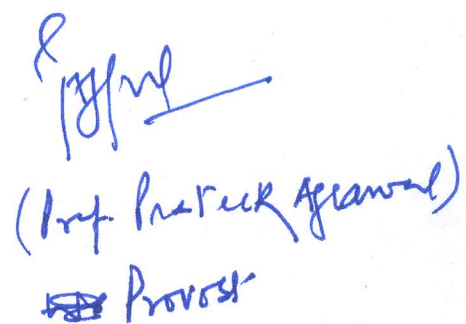 (Prof. Prateek Agrawal)
Provost